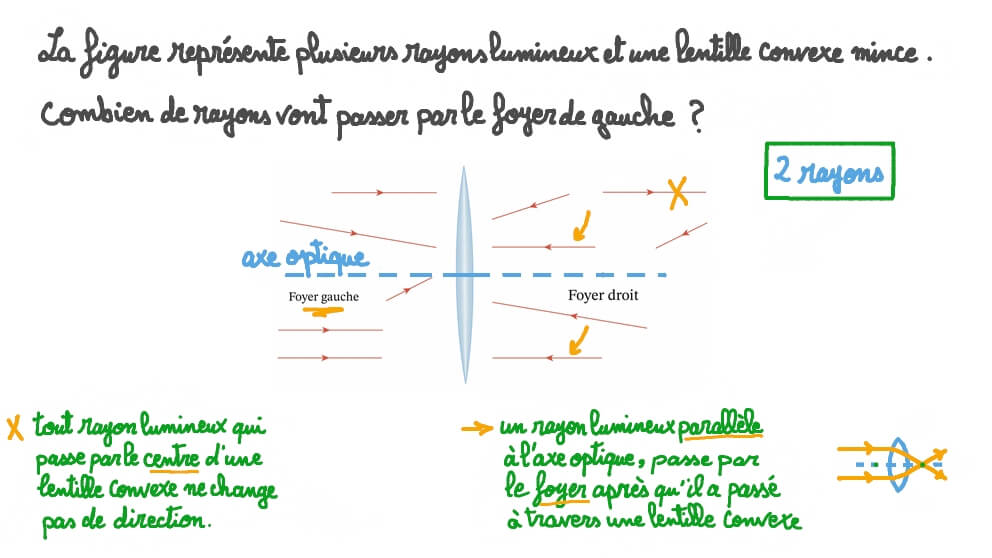 La figure représente plusieurs rayons lumineux et une lentille convexe mince.
Combien de rayons vont passer par le foyer de gauche ?
2 rayons
axe optique
Foyer gauche
Foyer droit
X tout rayon lumineux qui
passe par le centre d'une
lentille convexe ne change
pas de direction.
→ un rayon lumineux parallèle
à l'axe optique, passe par
le foyer après qu'il a passé
à travers une lentille convexe